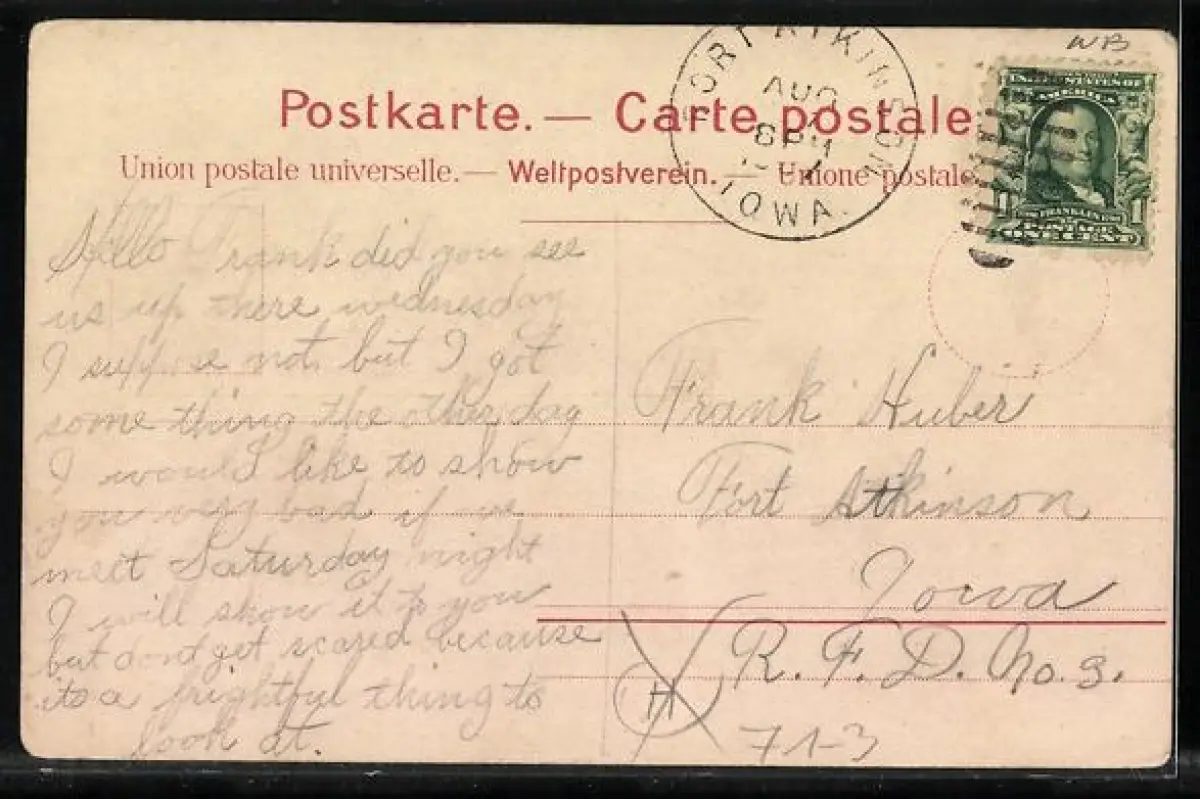 WB
FORT ATKINSON
AUG
8 PM
IOWA.
UNITED STATES OF
AMERICA
1 FRANKLIN 1
POSTAGE
ONE CENT
Postkarte. — Carte postale.
Union postale universelle. — Weltpostverein. — Unione postale
Hello Frank did you see
us up there wednesday
I suppose not, but I got
some thing the other day
I would like to show
you very bad if we
meet Saturday night
I will show it to you
but dont get scared because
its a frightful thing to
look at.
Frank Huber
Fort Atkinson
Iowa
R. F. D. No. 3.
H
71-3